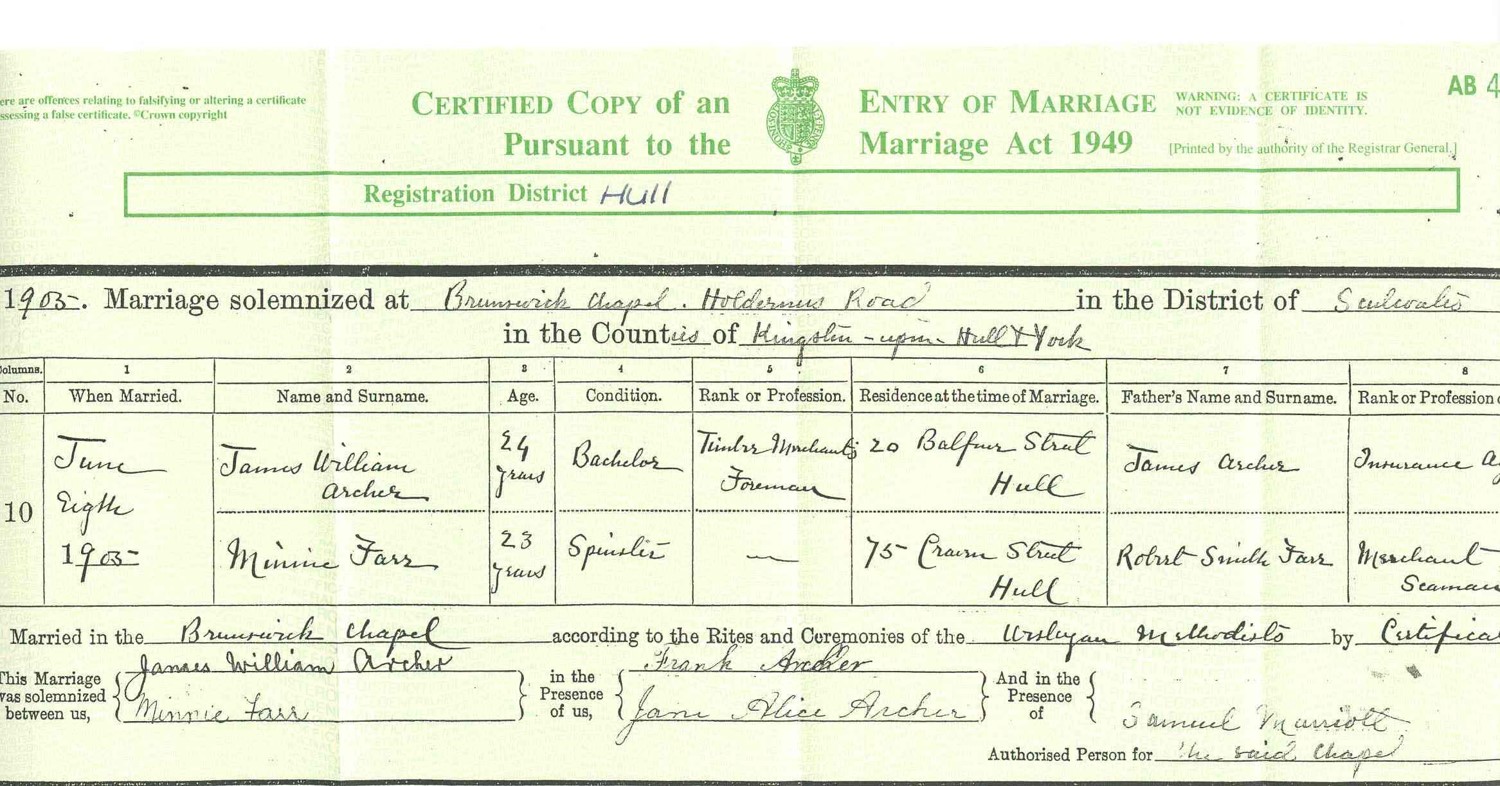 ere are offences relating to falsifying or altering a certificate
ssessing a false certificate. ©Crown copyright
CERTIFIED COPY of an ENTRY OF MARRIAGE
Pursuant to the Marriage Act 1949
WARNING: A CERTIFICATE IS
NOT EVIDENCE OF IDENTITY.
[Printed by the authority of the Registrar General.]
AB 4
Registration District Hull
1905. Marriage solemnized at Brunswick Chapel. Holderness Road in the District of Sculcoates
in the Counties of Kingston-upon-Hull & York
Columns. 1 2 3 4 5 6 7 8
No. When Married. Name and Surname. Age. Condition. Rank or Profession. Residence at the time of Marriage. Father's Name and Surname. Rank or Profession o
10
June
Eighth
1905
James William
Archer
24
years
Bachelor
Timber Merchant's
Foreman
20 Balfour Street
Hull
James Archer
Insurance Ag
Minnie Farr
23
years
Spinster
—
75 Craven Street
Hull
Robert Smith Farr
Merchant
Seaman
Married in the Brunswick Chapel according to the Rites and Ceremonies of the Wesleyan Methodists by Certifica
This Marriage
was solemnized
between us,
James William Archer
Minnie Farr
in the
Presence
of us,
Frank Archer
Jane Alice Archer
And in the
Presence
of
Samuel Marriott
Authorised Person for the said Chapel